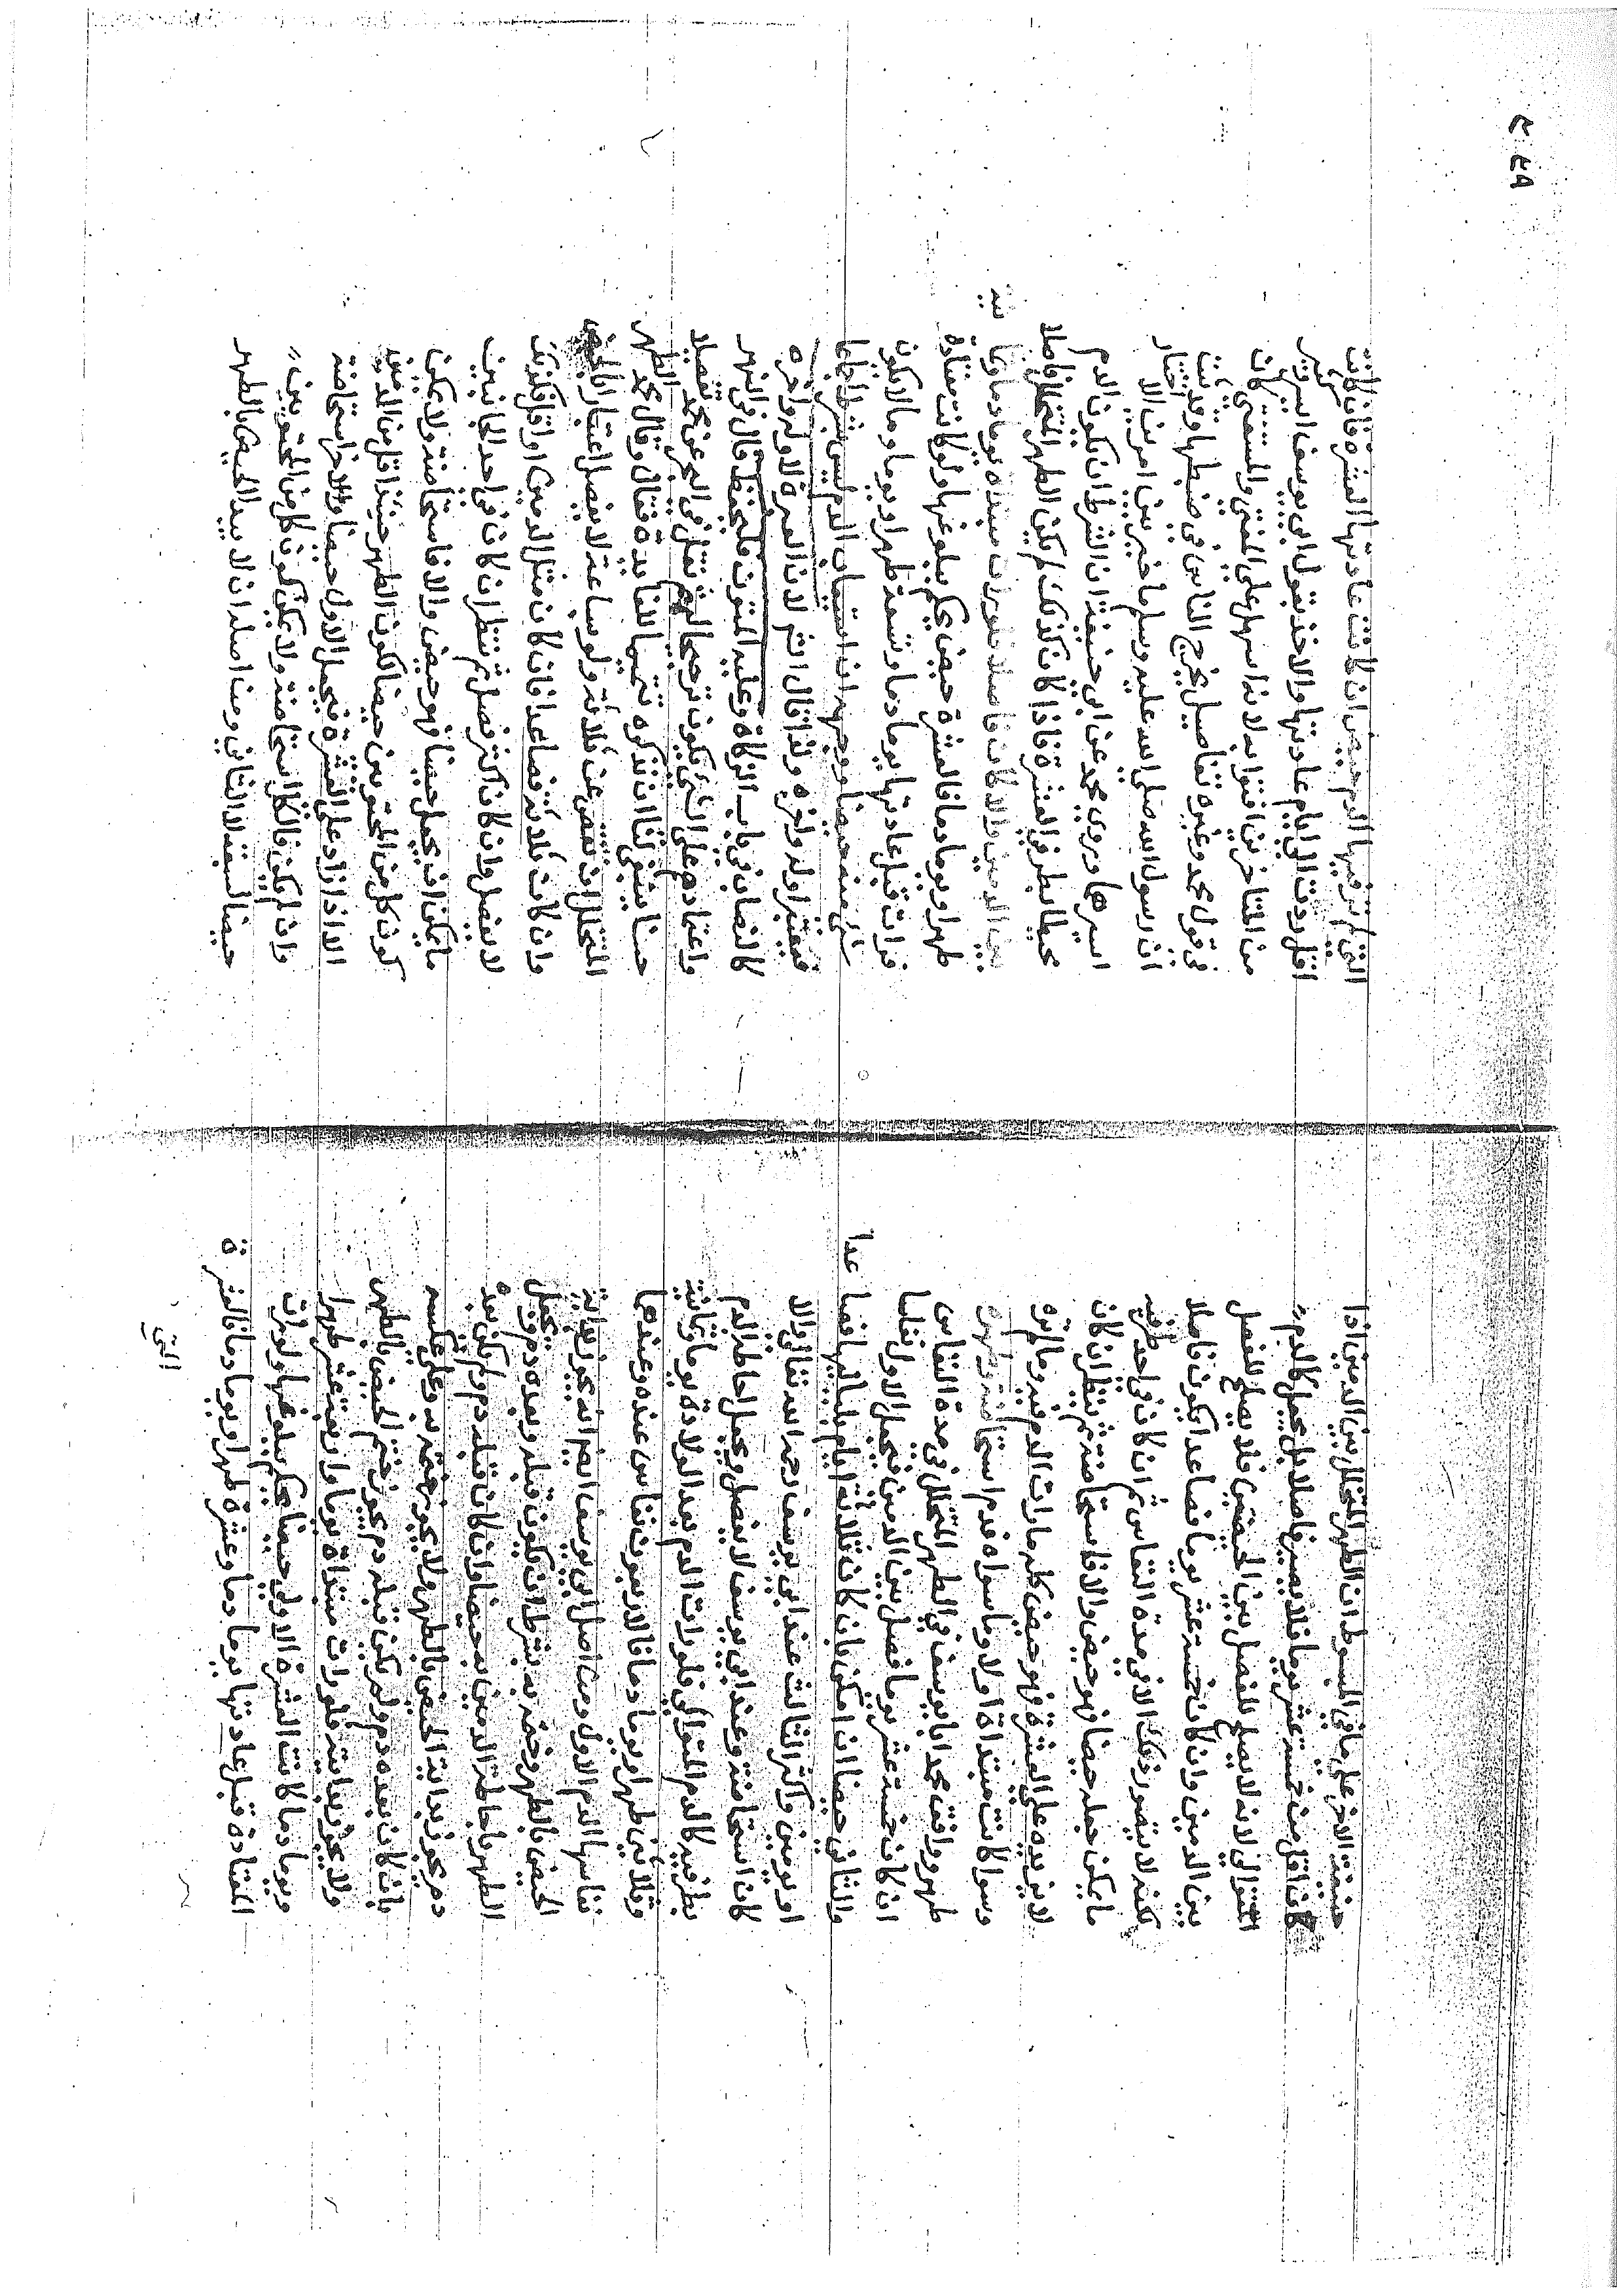 حنيفة الاخر على ما في المبسوط ان الطهر المتخلل بين الدمين اذا
كان اقل من خمسة عشر يوما فلا يصير فاصلا بل يجعل كالدم
المتوالي لانه لا يصلح للفصل بين الحيضتين فلا يصلح للفصل
بين الدمين وان كان خمسة عشر يوما فصاعدا يكون فاصلا
لكنه لا يتصور ذلك الا في مدة النفاس ثم ان كان في احد طرفيه
ما يمكن جعله حيضا فهو حيض والا فاستحاضة ثم ينظر ان كان
لا يزيد على العشرة فهو حيض كله ما رات الدم فيه وما لم تره
وسوا كانت مبتداة اولا وما سواه فدم استحاضة وطهره
طهر ووافق محمد ابا يوسف في الطهر المتخلل في مدة النفاس
ان كان خمسة عشر يوما فصل بين الدمين فيجعل الاول نفاسا
والثاني حيضا ان امكن بان كان ثلاثة ايام بلياليها فصاعدا
او يومين واكثر الثالث عند ابي يوسف رحمه الله تعالى والا
كان استحاضة وعند ابي يوسف لا يفصل ويجعل احاطة الدم
بطرفيه كالدم المتوالي فلو رات الدم بعد الولادة يوما وثمانية
وثلاثين طهرا ويوما دما فالاربعون نفاس عنده وعندهما
نفاسها الدم الاول ومن اصل ابي يوسف ايضا انه يجوز بداية
الحيض بالطهر وختمه به بشرط ان يكون قبله وبعده دم ويجعل
الطهر باحاطة الدمين به حيضا وان كان قبله دم ولم يكن بعده
دم يجوز بداية الحيض بالطهر ولا يجوز ختمه به وعلى عكسه
بان كان بعده دم ولم يكن قبله دم يجوز ختم الحيض بالطهر
ولا يجوز بدايته فلو رات مبتداة يوما واربعة عشر طهرا
ويوما دما كانت العشرة الاولى حيضا يحكم ببلوغها ولو رات
المعتادة قبل عادتها يوما دما وعشرة طهرا ويوما دما فالعشرة
التي
٢٢٩
التي لم تر فيها الدم حيض ان كانت عادتها العشرة فان كانت
اقل ردت الى ايام عادتها والاخذ بقول ابي يوسف ايسر وكثير
من المتاخرين افتوا به لانه اسهل على المفتي والمستفتي كان
في قول محمد وغيره تفاصيل يحرج الناس في ضبطها وقد ثبت
ان رسول الله صلى الله عليه وسلم ما خير بين امرين الا اختار
ايسرهما وروى محمد عن ابي حنيفة ان الشرط ان يكون الدم
محيطا بطرفي العشرة فاذا كان كذلك لم يكن الطهر المتخلل فاصلا
بين الدمين والا كان فاصلا فلو رات مبتداة يوما دما وثمانية
طهرا ويوما دما فالعشرة حيض يحكم ببلوغها ولو كانت معتادة
فرات قبل عادتها يوما دما وتسعة طهرا ويوما دما لا يكون
شي منه حيضا ووجهه ان استيعاب الدم ليس بشرط اجماعا
فيعتبر اوله واخره ولذا قال الشم لان العبرة لاوله واخره
كالنصاب في باب الزكاة وعليه المتون فليحفظ قال في النهر
واعتمادهم على الشي يكون ترجيحا له نقل في البحر عن محمد تفصيلا
حسنا ينبغي لنا ان نذكره تتميما للفايدة فقال وقال محمد الطهر
المتخلل ان نقص عن ثلاثة ولو بساعة لا يفصل اعتبارا بالحيض
وان كان ثلاثة فصاعدا فان كان مثل الدمين او اقل فكذلك
لا يفصل وان كان اكثر فصل ثم ينظر ان كان في احد الجانبين
ما يمكن ان يجعل حيضا فهو حيض والا فاستحاضة ولا يمكن
كون كل من المحتوشين حيضا لكون الطهر حينئذ اقل من الدمين
الا اذا زاد على العشرة فيجعل الاول حيضا والاخر استحاضة
وان لم يكن فالكل استحاضة ولا يمكن كون كل من المحتوشين
حيضا لسبقه لا الثاني ومن اصله ان لا يبدا الحيض بالطهر